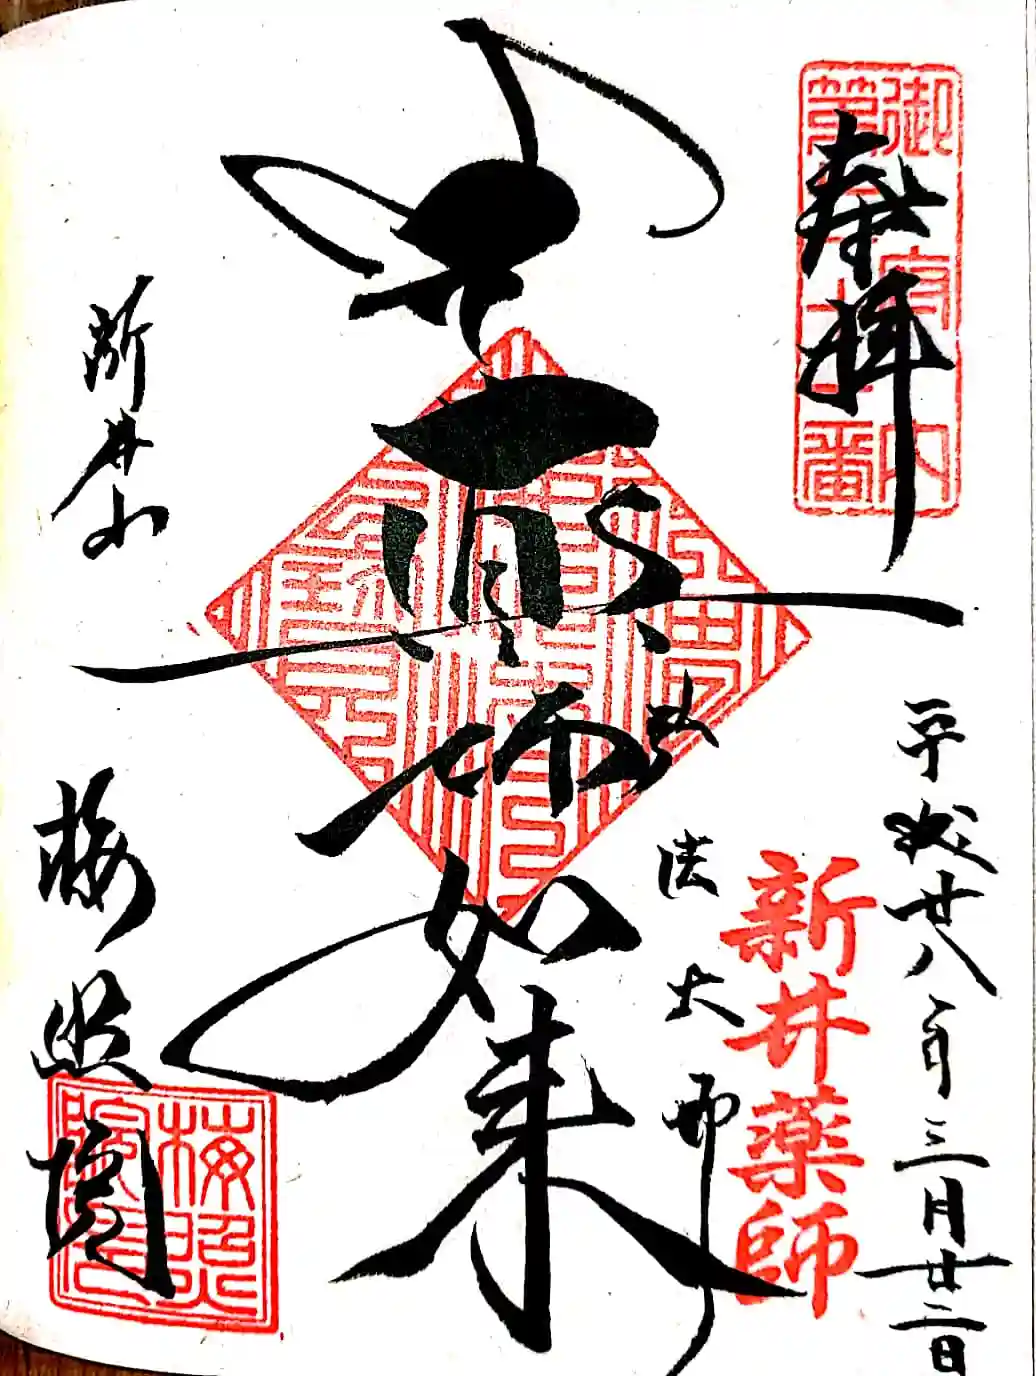 奉拝
御府内
第七十一番
平成廿八年三月廿二日
新井薬師
弘法大師
薬師如来
新井山
梅照院